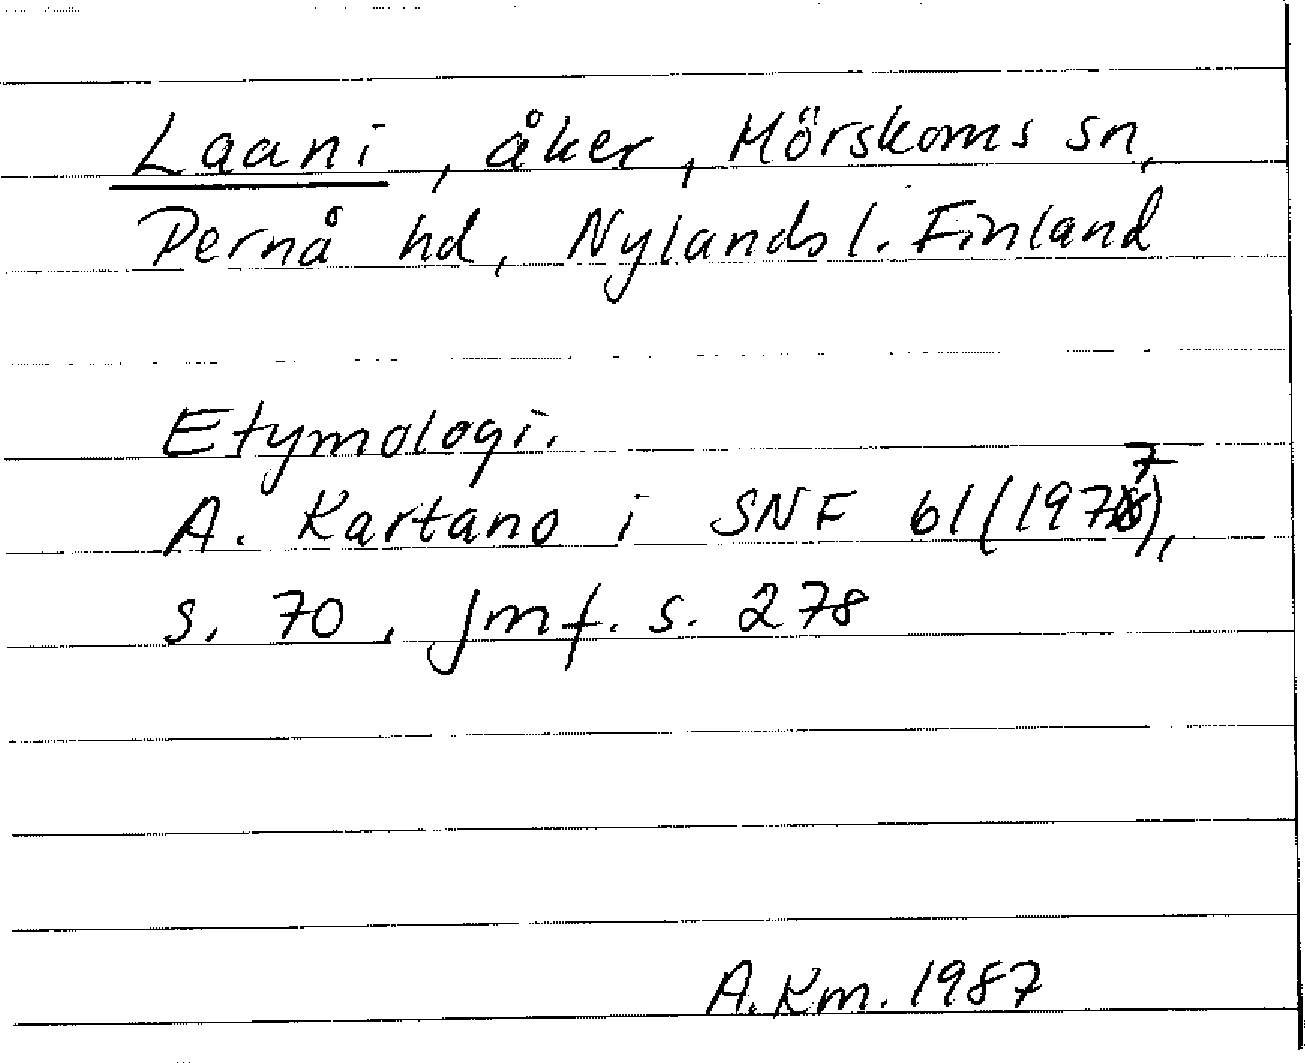 Laani, åker, Mörskoms sn,
Pernå hd, Nylands l. Finland
Etymologi.
A. Kartano i SNF 61 (1977),
s. 70, jmf. s. 278
A.Km. 1987